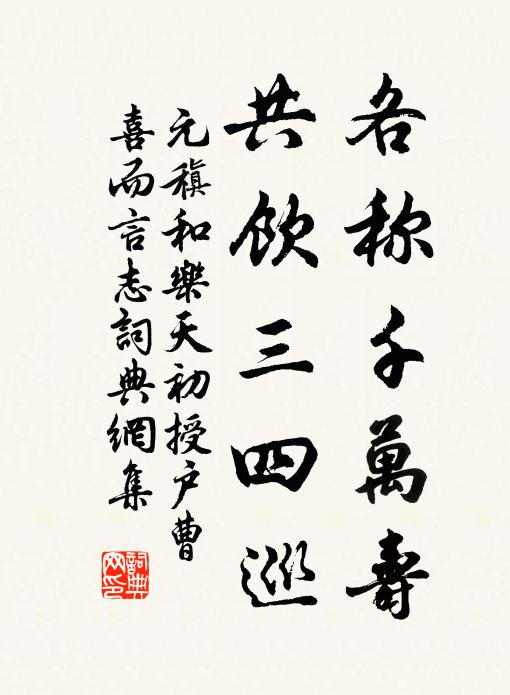 各称千萬壽
共飲三四巡
元稹和樂天初授户曹
喜而言志詞典網集
詞典網印